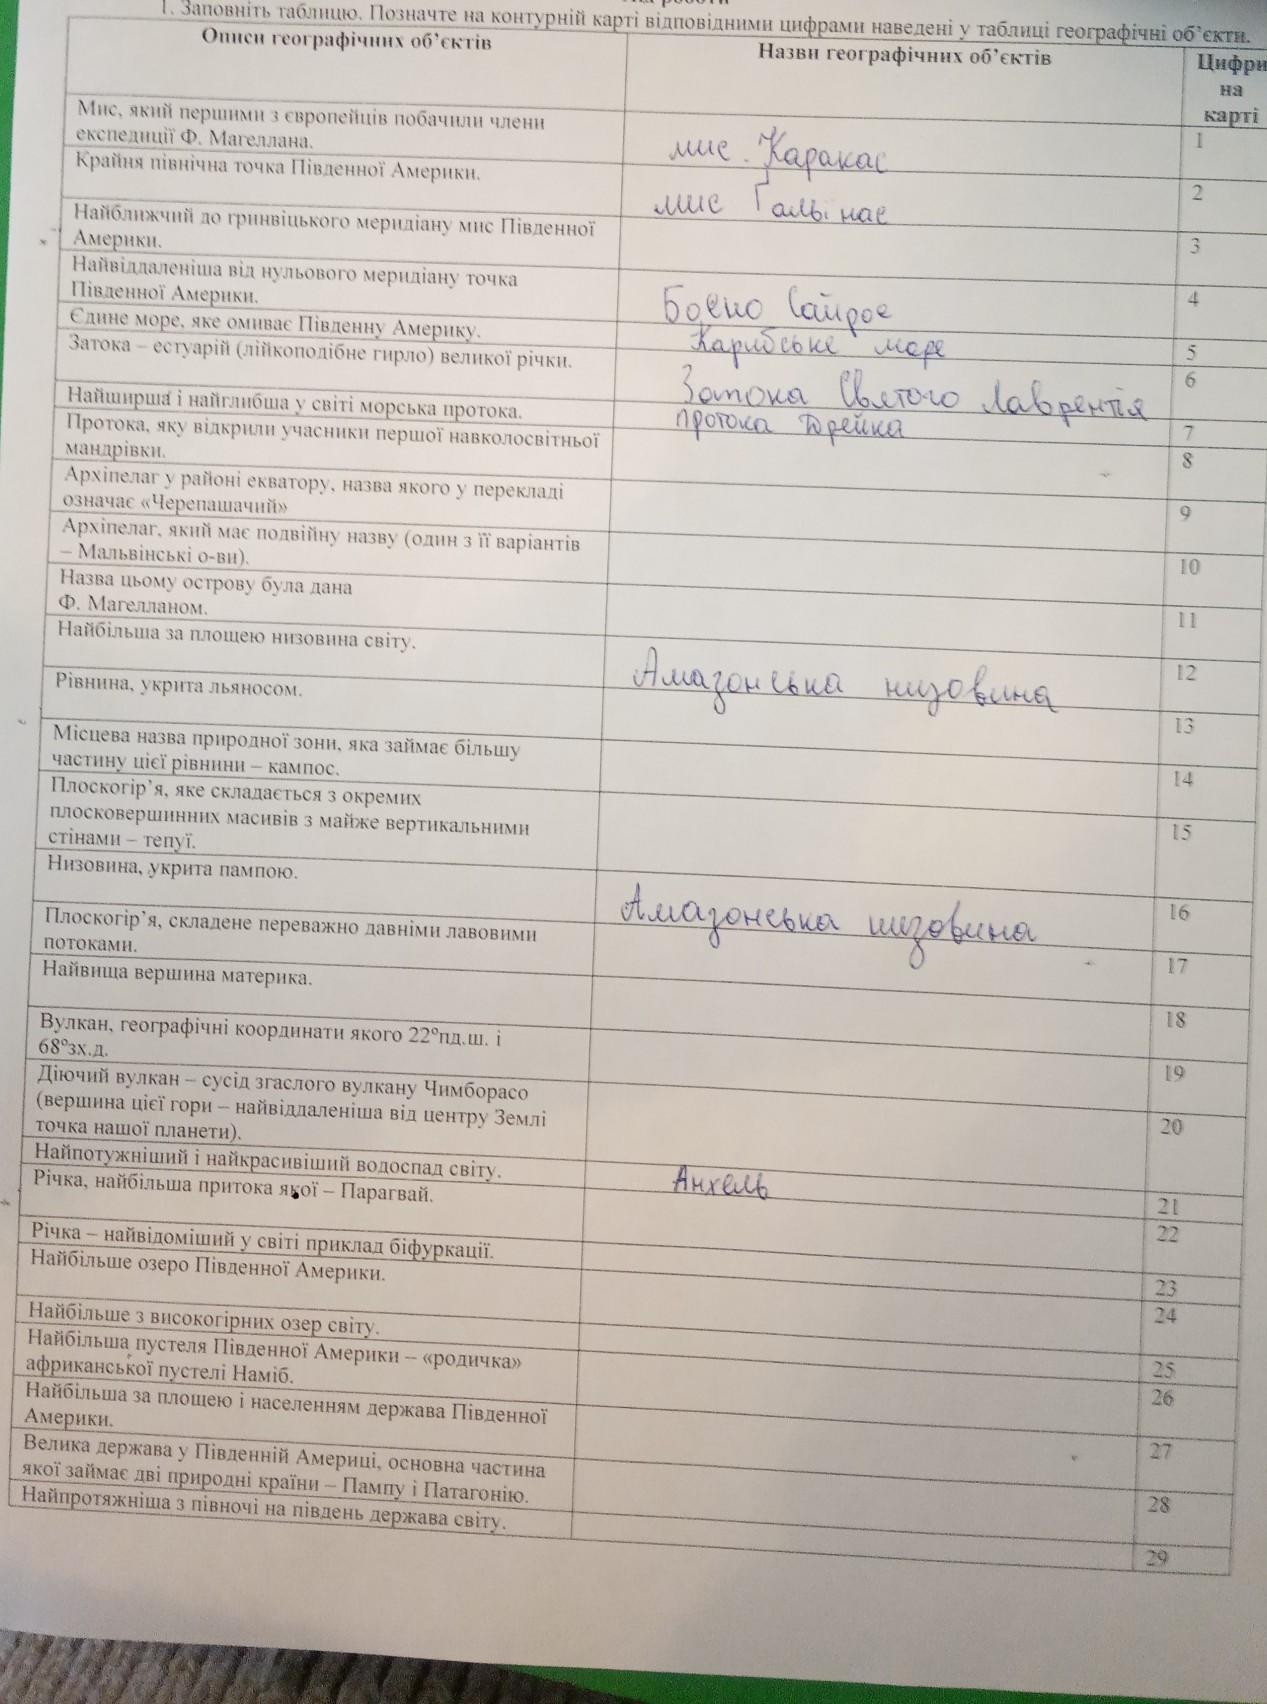 1. Заповніть таблицю. Позначте на контурній карті відповідними цифрами наведені у таблиці географічні об'єкти.
Описи географічних об'єктів
Назви географічних об'єктів
Цифри
на
карті
Мис, який першими з європейців побачили члени
експедиції Ф. Магеллана.
мис. Каракас
1
Крайня північна точка Південної Америки.
мис Гальінас
2
Найближчий до гринвіцького меридіану мис Південної
Америки.
3
Найвіддаленіша від нульового меридіану точка
Південної Америки.
Боєно Сайрос
4
Єдине море, яке омиває Південну Америку.
Карибське море
5
Затока – естуарій (лійкоподібне гирло) великої річки.
Затока Святого Лаврентія
6
Найширша і найглибша у світі морська протока.
протока Дрейка
7
Протока, яку відкрили учасники першої навколосвітньої
мандрівки.
8
Архіпелаг у районі екватору, назва якого у перекладі
означає «Черепашачий»
9
Архіпелаг, який має подвійну назву (один з її варіантів
– Мальвінські о-ви).
10
Назва цьому острову була дана
Ф. Магелланом.
11
Найбільша за площею низовина світу.
Амазонська низовина
12
Рівнина, укрита льяносом.
13
Місцева назва природної зони, яка займає більшу
частину цієї рівнини – кампос.
14
Плоскогір'я, яке складається з окремих
плосковершинних масивів з майже вертикальними
стінами – тепуї.
15
Низовина, укрита пампою.
Амазонська низовина
16
Плоскогір'я, складене переважно давніми лавовими
потоками.
17
Найвища вершина материка.
18
Вулкан, географічні координати якого 22°пд.ш. і
68°зх.д.
19
Діючий вулкан – сусід згаслого вулкану Чимборасо
(вершина цієї гори – найвіддаленіша від центру Землі
точка нашої планети).
20
Найпотужніший і найкрасивіший водоспад світу.
Анхель
21
Річка, найбільша притока якої – Парагвай.
22
Річка – найвідоміший у світі приклад біфуркації.
23
Найбільше озеро Південної Америки.
24
Найбільше з високогірних озер світу.
25
Найбільша пустеля Південної Америки – «родичка»
африканської пустелі Наміб.
26
Найбільша за площею і населенням держава Південної
Америки.
27
Велика держава у Південній Америці, основна частина
якої займає дві природні країни – Пампу і Патагонію.
28
Найпротяжніша з півночі на південь держава світу.
29